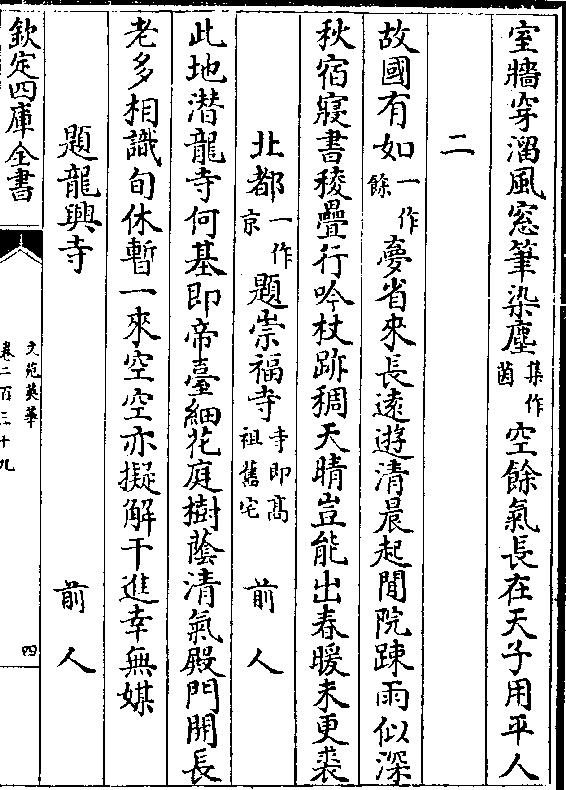 室牆穿溜風窓筆染塵集作茵空餘氣長在天子用平人
二
故國有如一作餘夢省來長遠遊清晨起閒院踈雨似深
秋宿寢書稜疊行吟杖跡稠天晴豈能出春暖未更裘
北都一作京題崇福寺寺即髙祖舊宅 前人
此地潛龍寺何基即帝臺細花庭樹蔭清氣殿門開長
老多相識旬休暫一來空空亦擬解干進幸無媒
題龍興寺 前人
欽定四庫全書
文苑英華
卷二百三十九
四